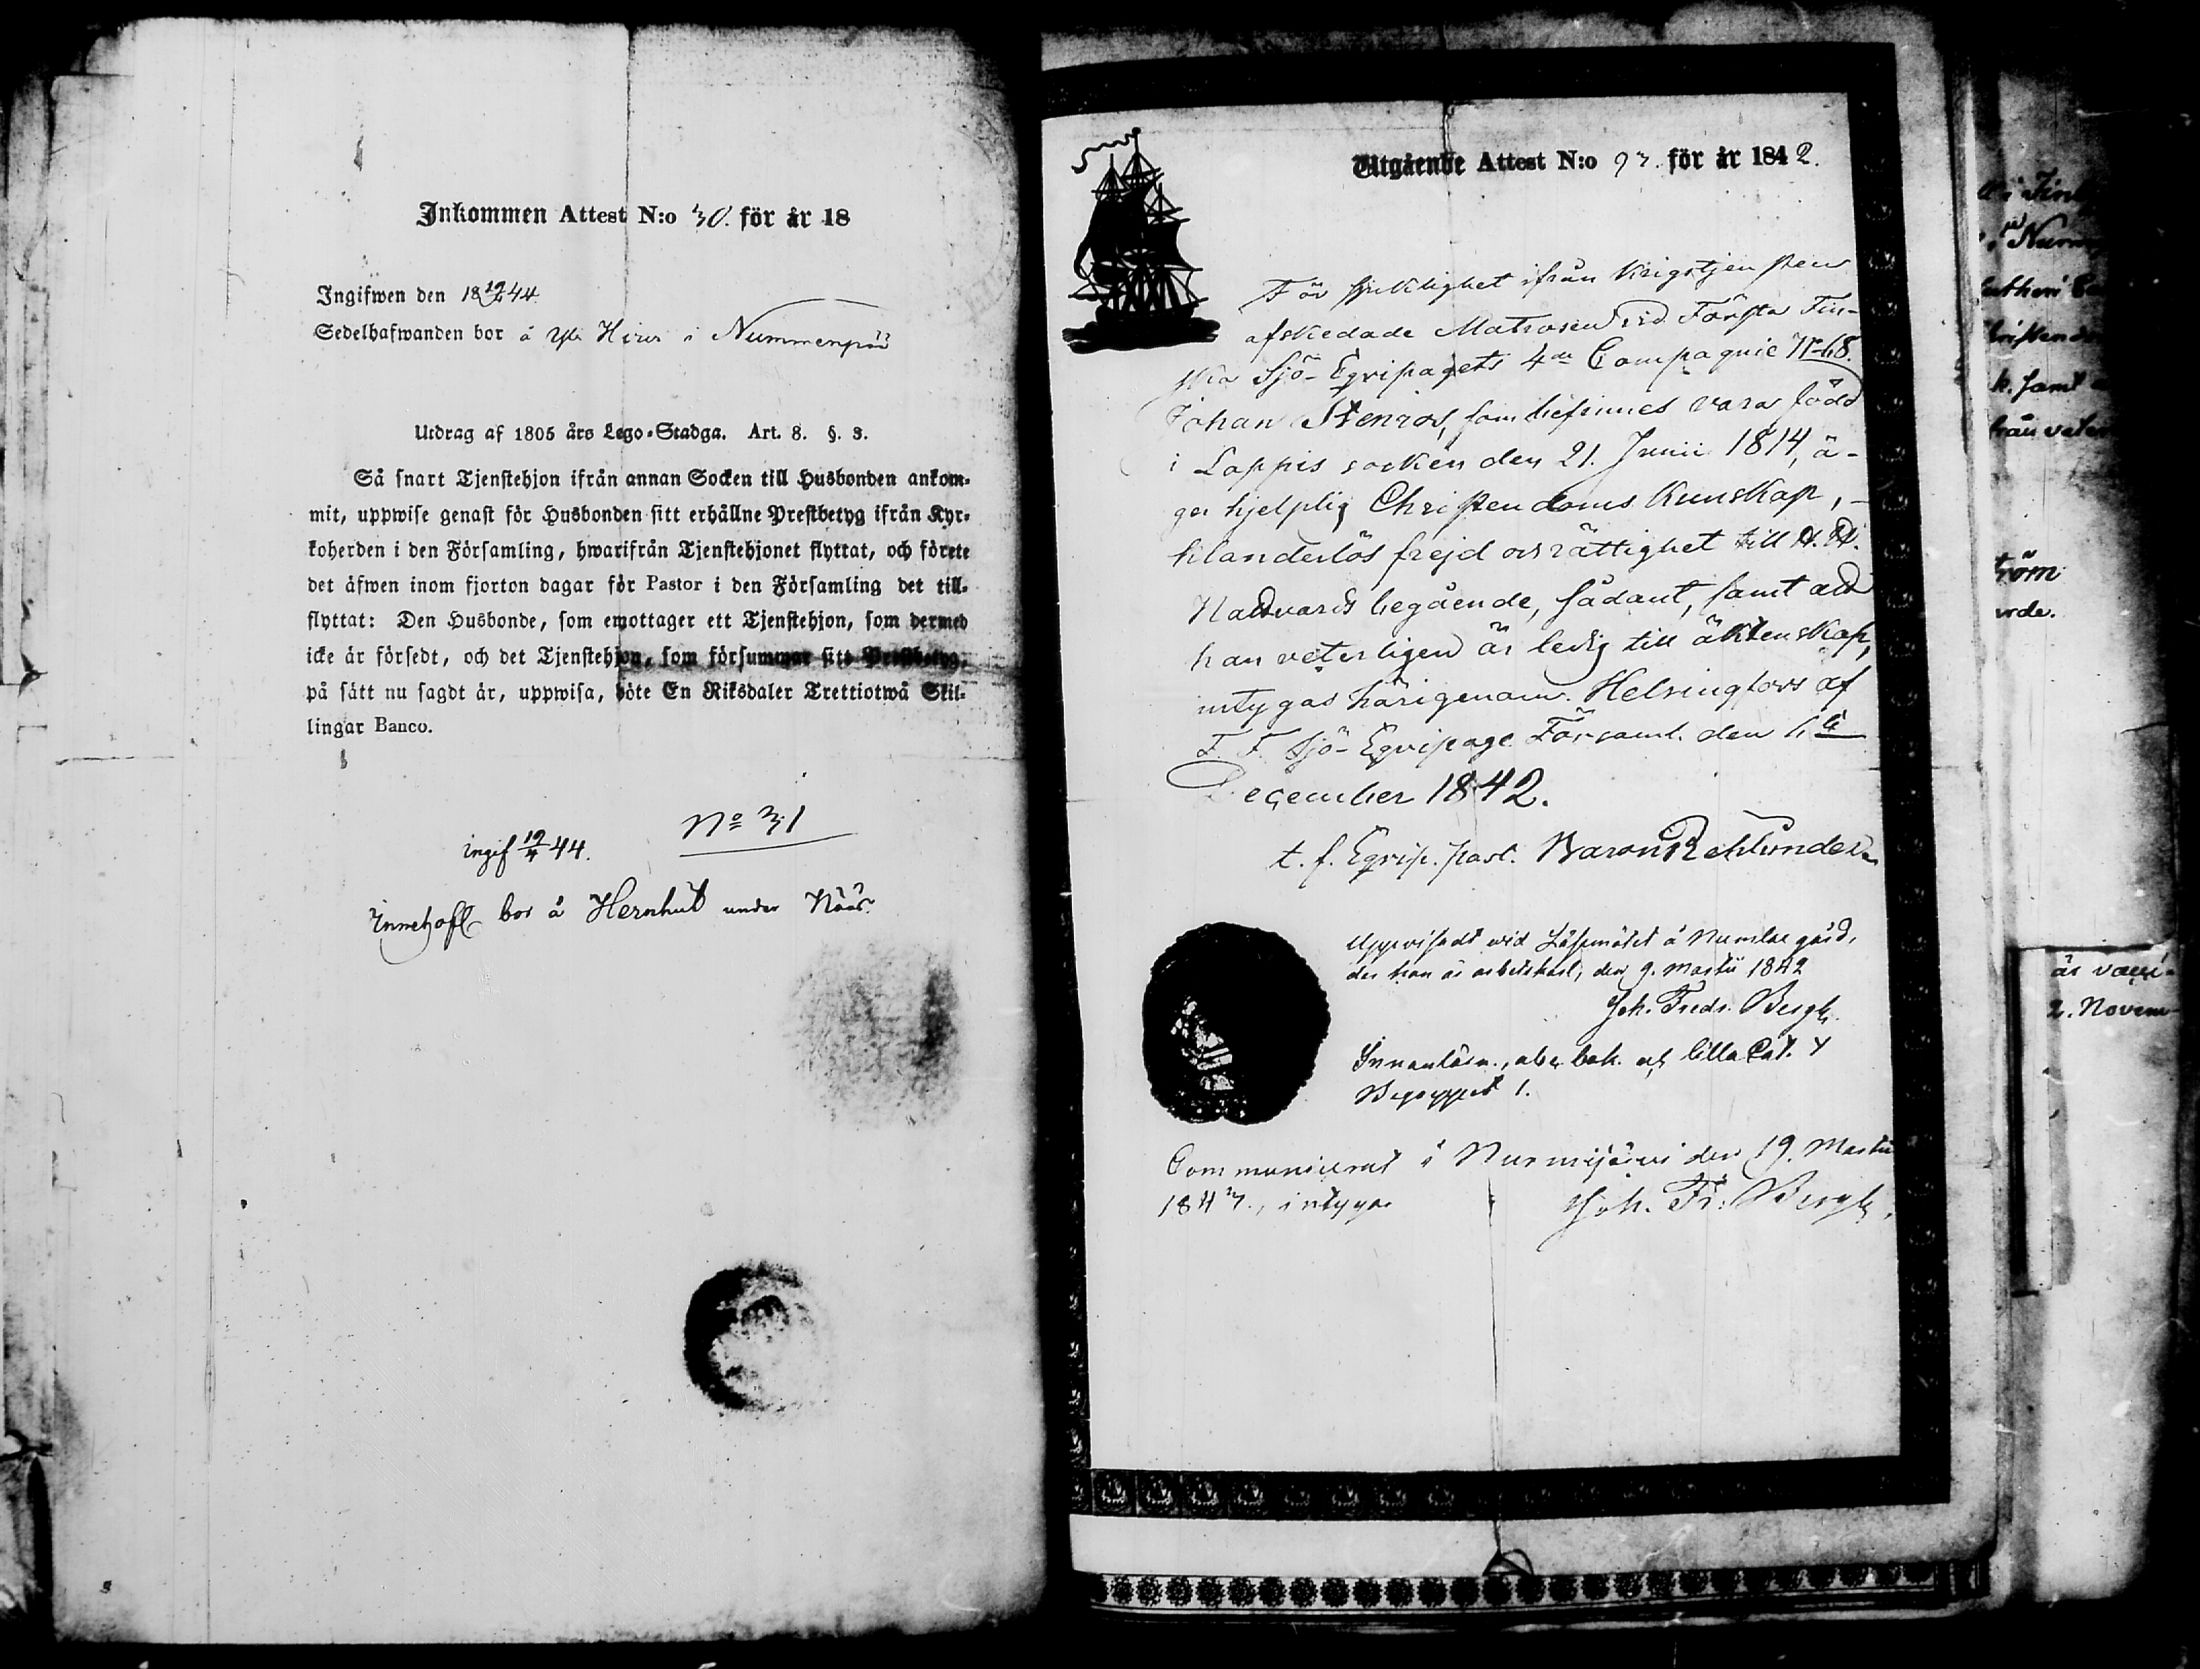 Inkommen Attest N:o 30. för år 18
Ingifwen den 18 19/4 44
Sedelhafwanden bor å Yli Hirvi i Nummenpää
Utdrag af 1805 års Lego-Stadga. Art. 8. §. 3.
Så snart Tjenstehjon ifrån annan Socken till Husbonden ankom-
mit, uppwise genast för Husbonden sitt erhållne Prestbetyg ifrån Kyr-
koherden i den Församling, hwarifrån Tjenstehjonet flyttat, och förete
det äfwen inom fjorton dagar för Pastor i den Församling det till-
flyttat: Den Husbonde, som emottager ett Tjenstehjon, som dermed
icke är försedt, och det Tjenstehjon, som försummar sitt Prestbetyg,
på sätt nu sagdt är, uppwisa, böte En Riksdaler Trettiotwå Skil-
lingar Banco.
No 31
ingif 19/4 44.
Innehafv bor å Hernhut under Nääs.
Utgående Attest N:o 93. för år 1842.
För sjuklighet ifrån Krigstjensten
afskedade Matrosen vid Första Fin-
ska Sjö-Eqvipagets 4de Compagnie No 68.
Johan Stenros, som befinnes vara född
i Loppis socken den 21. Junii 1814, ä-
ger hjelplig Christendoms Kunskap, -
klanderlös frejd och rättighet till H. H.
Nattvards begående, sådant, samt att
han veterligen är ledig till äktenskap,
intygas härigenom. Helsingfors af
F. F. Sjö-Eqvipage Församl. den
December 1842.
t. f. Eqvip. past.
Uppvisadt vid Läsmötet å Numlax gård,
der han är arbetskarl, den 9. Martii 1842
Joh. Fredr. Bergh.
Innanläsn., abc bok. och lilla Cat. Y
Begreppet 1.
Communicerat i Nurmijärvi den 19. Martii
1843., intygar Joh. Fr: Bergh.
k. samt
ström
är vacci-
2. Novem-